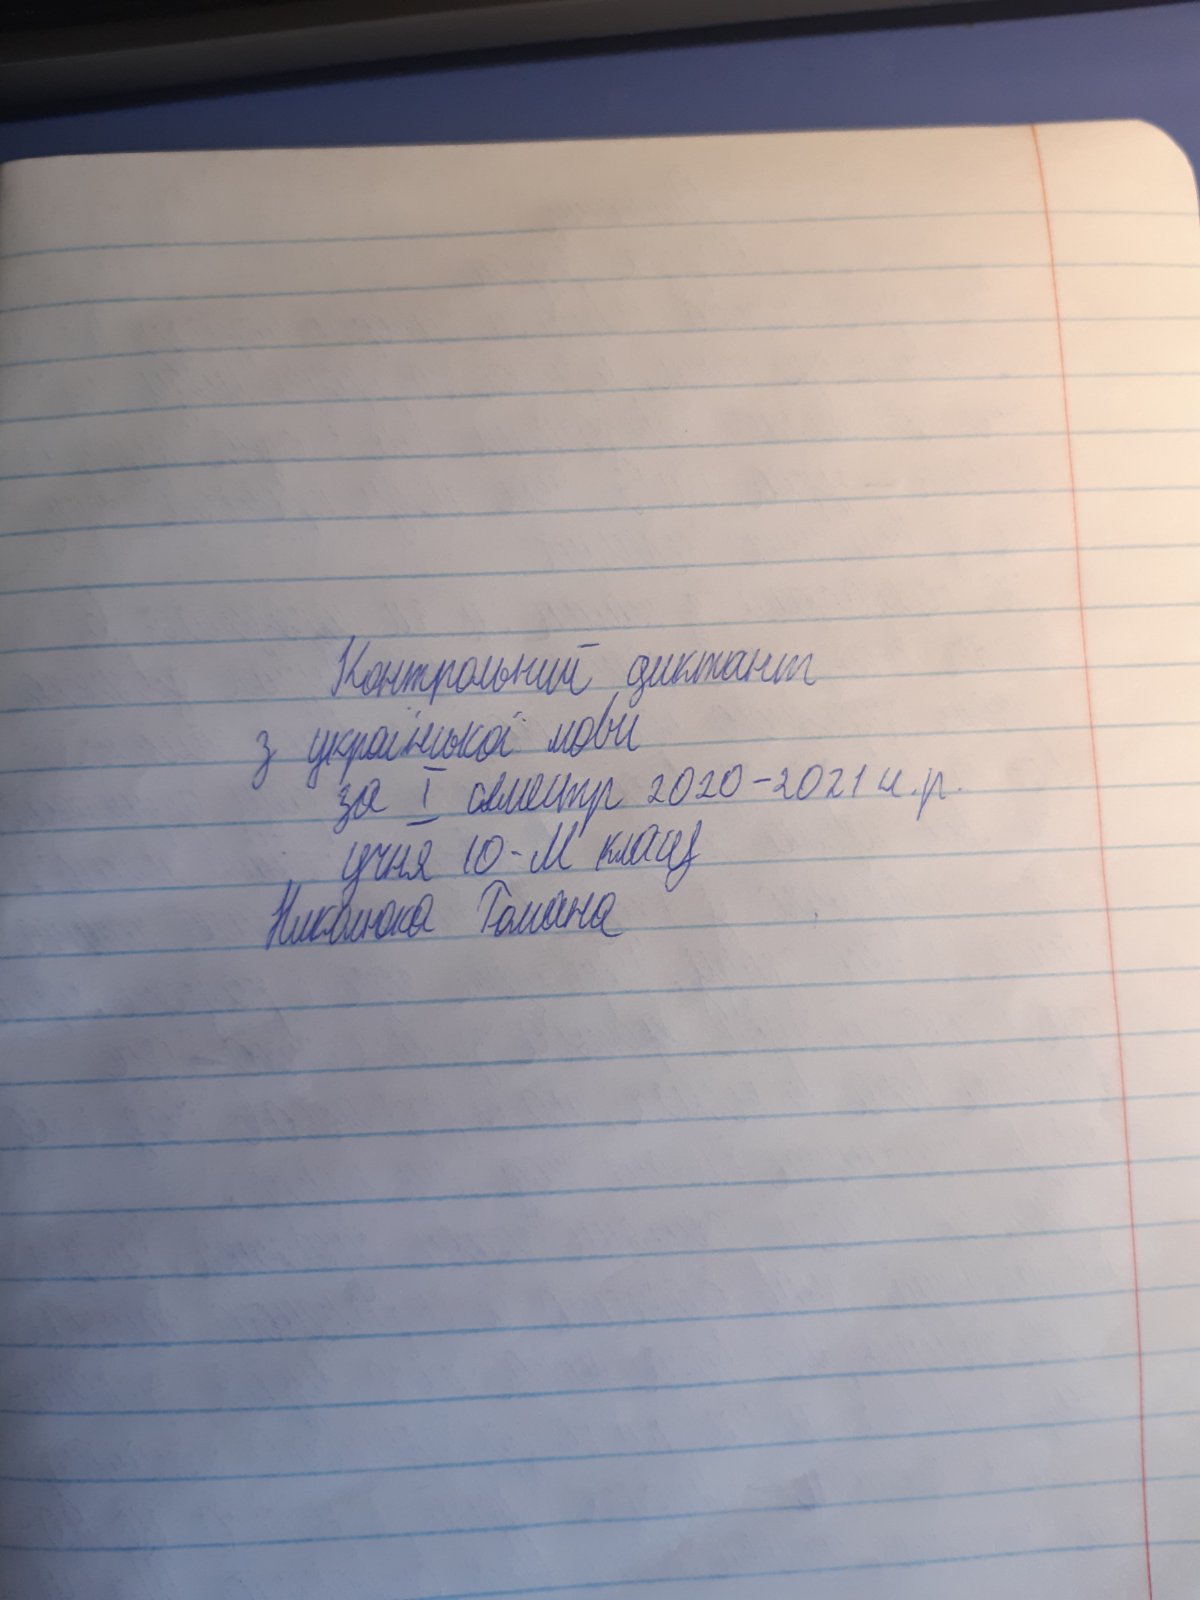 Контрольний диктант
з української мови
за І семестр 2020-2021 н.р.
учня 10-М класу
Николюка Романа